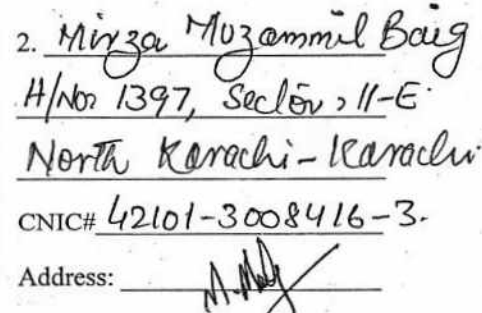 2. Mirza Muzammil Baig
H/No: 1397, Sector, 11-E
North Karachi-Karachi
CNIC# 42101-3008416-3.
Address: